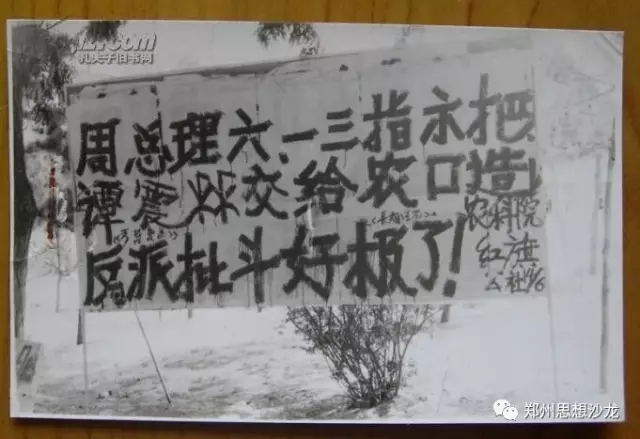 孔夫子旧书网
周总理六.一三指示把
谭震林交给农口造
反派批斗好极了!
农科院
红旗
公社
郑州思想沙龙